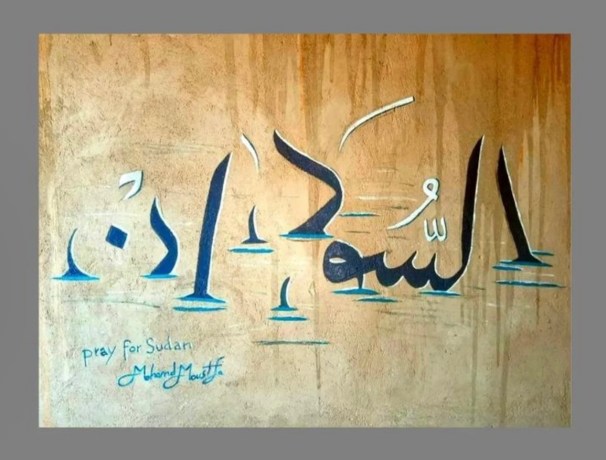 السُّودَانْ
pray for Sudan
Mohamed Moustfa